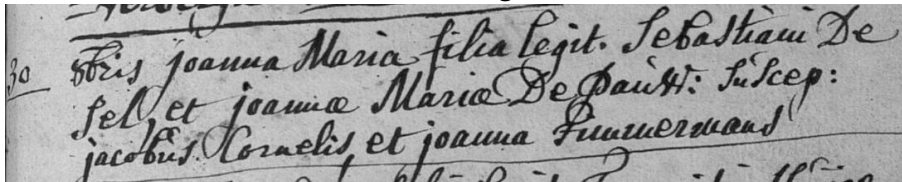 30 8bris joanna Maria filia legit. Sebastiani De
Sel, et joannæ Mariæ De Pauw: Suscep:
jacobus Cornelis, et joanna Timmermans